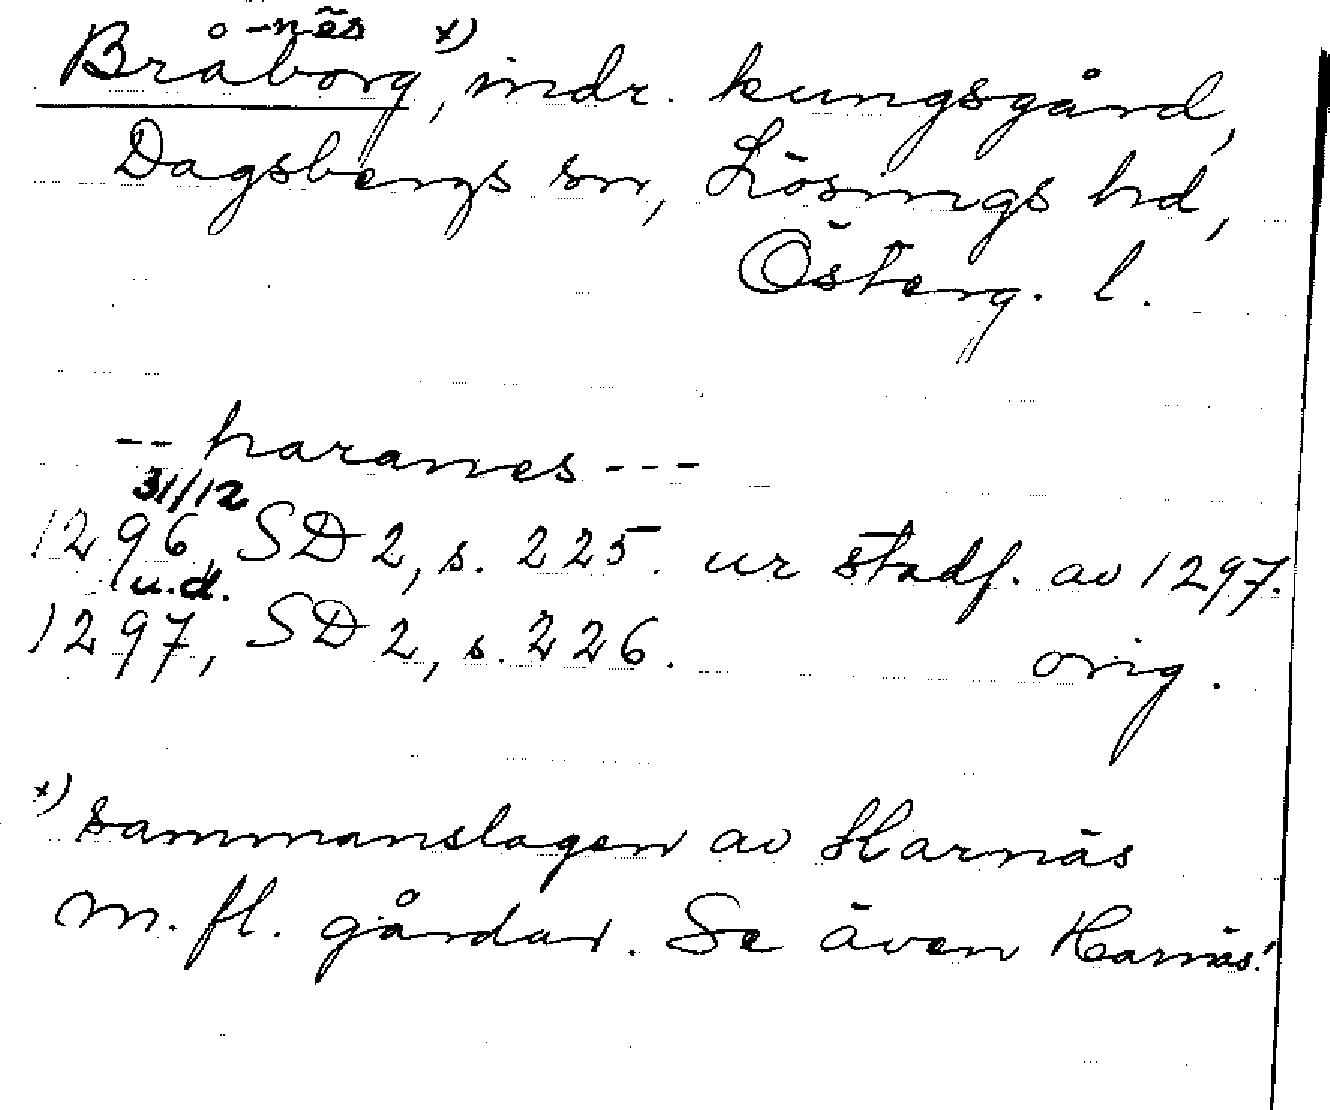 -näs x)
Bråborg, indr. kungsgård,
Dagsbergs sn, Lösings hd,
Österg. l.
-- haranes ---
31/12
1296, SD 2, s. 225. ur stadf. av 1297.
u.d.
1297, SD 2, s. 226. orig.
x) sammanslagen av Harnäs
m. fl. gårdar. Se även Harnäs!